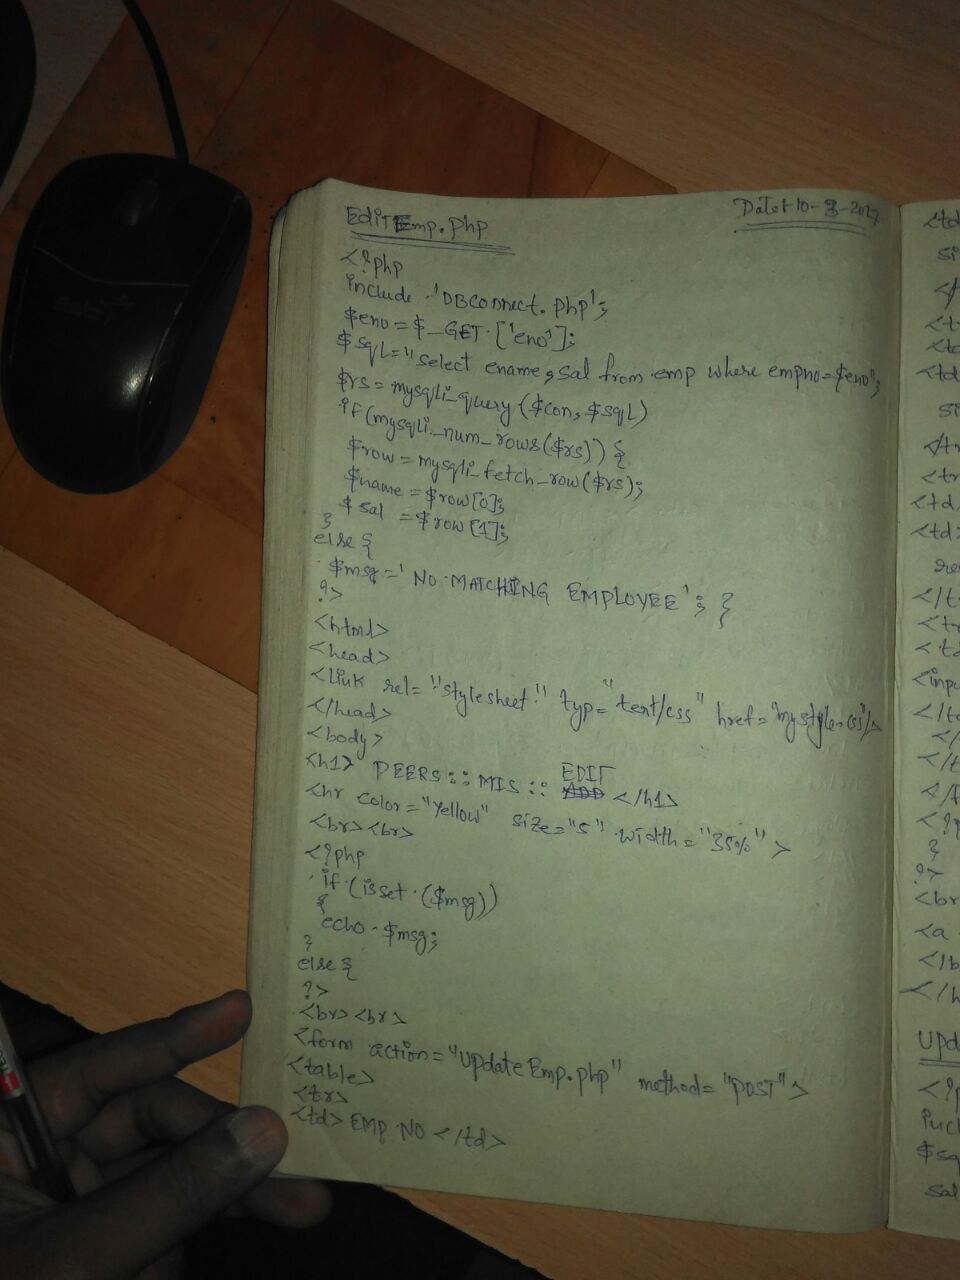 EditEmp.php
Date: 10-3-2017
<?php
include 'DBConnect.php';
$eno = $_GET ['eno'];
$sql="select ename, sal from emp where empno=$eno";
$rs = mysqli_query ($con, $sql)
if (mysqli_num_rows($rs)) {
$row = mysqli_fetch_row($rs);
$name = $row[0];
$sal = $row[1];
}
else {
$msg = 'NO MATCHING EMPLOYEE'; }
?>
<html>
<head>
<link rel="stylesheet" typ="text/css" href="mystyle.css"/>
</head>
<body>
<h1> PEERS :: MIS :: EDIT </h1>
<hr color="Yellow" size="5" width="35%">
<br><br>
<?php
if (isset ($msg))
{
echo $msg;
}
else {
?>
<br><br>
<form action="UpdateEmp.php" method="POST">
<table>
<tr>
<td> EMP NO </td>
<td
si
<t
<td
<td
si
</tr
<tr
<td
<td>
re
</t
<tr
<td
<inpu
</td
</
</t
</f
<?p
}
?>
<br
<a
</b
</h
Upd
<?p
incl
$sq
sal